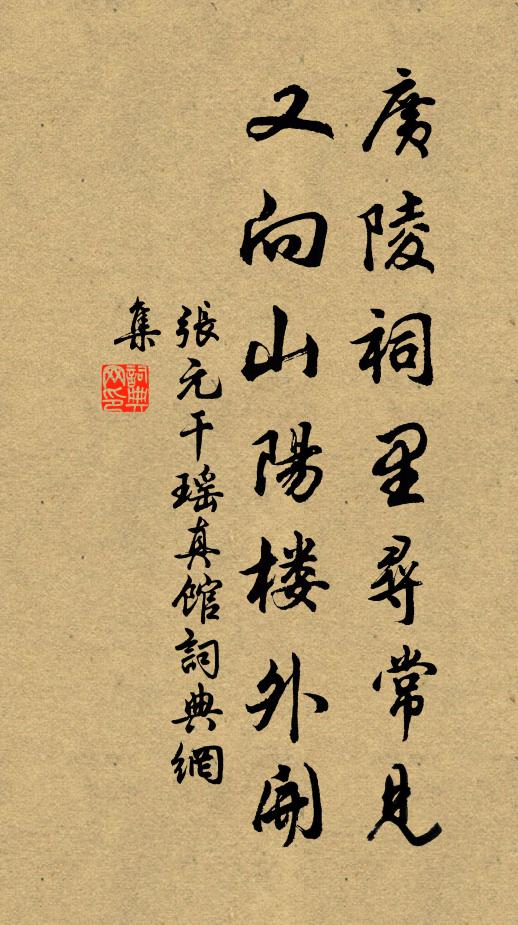 廣陵祠里尋常見
又向山陽楼外開
張元干瑶真館詞典網
集
詞典
网印